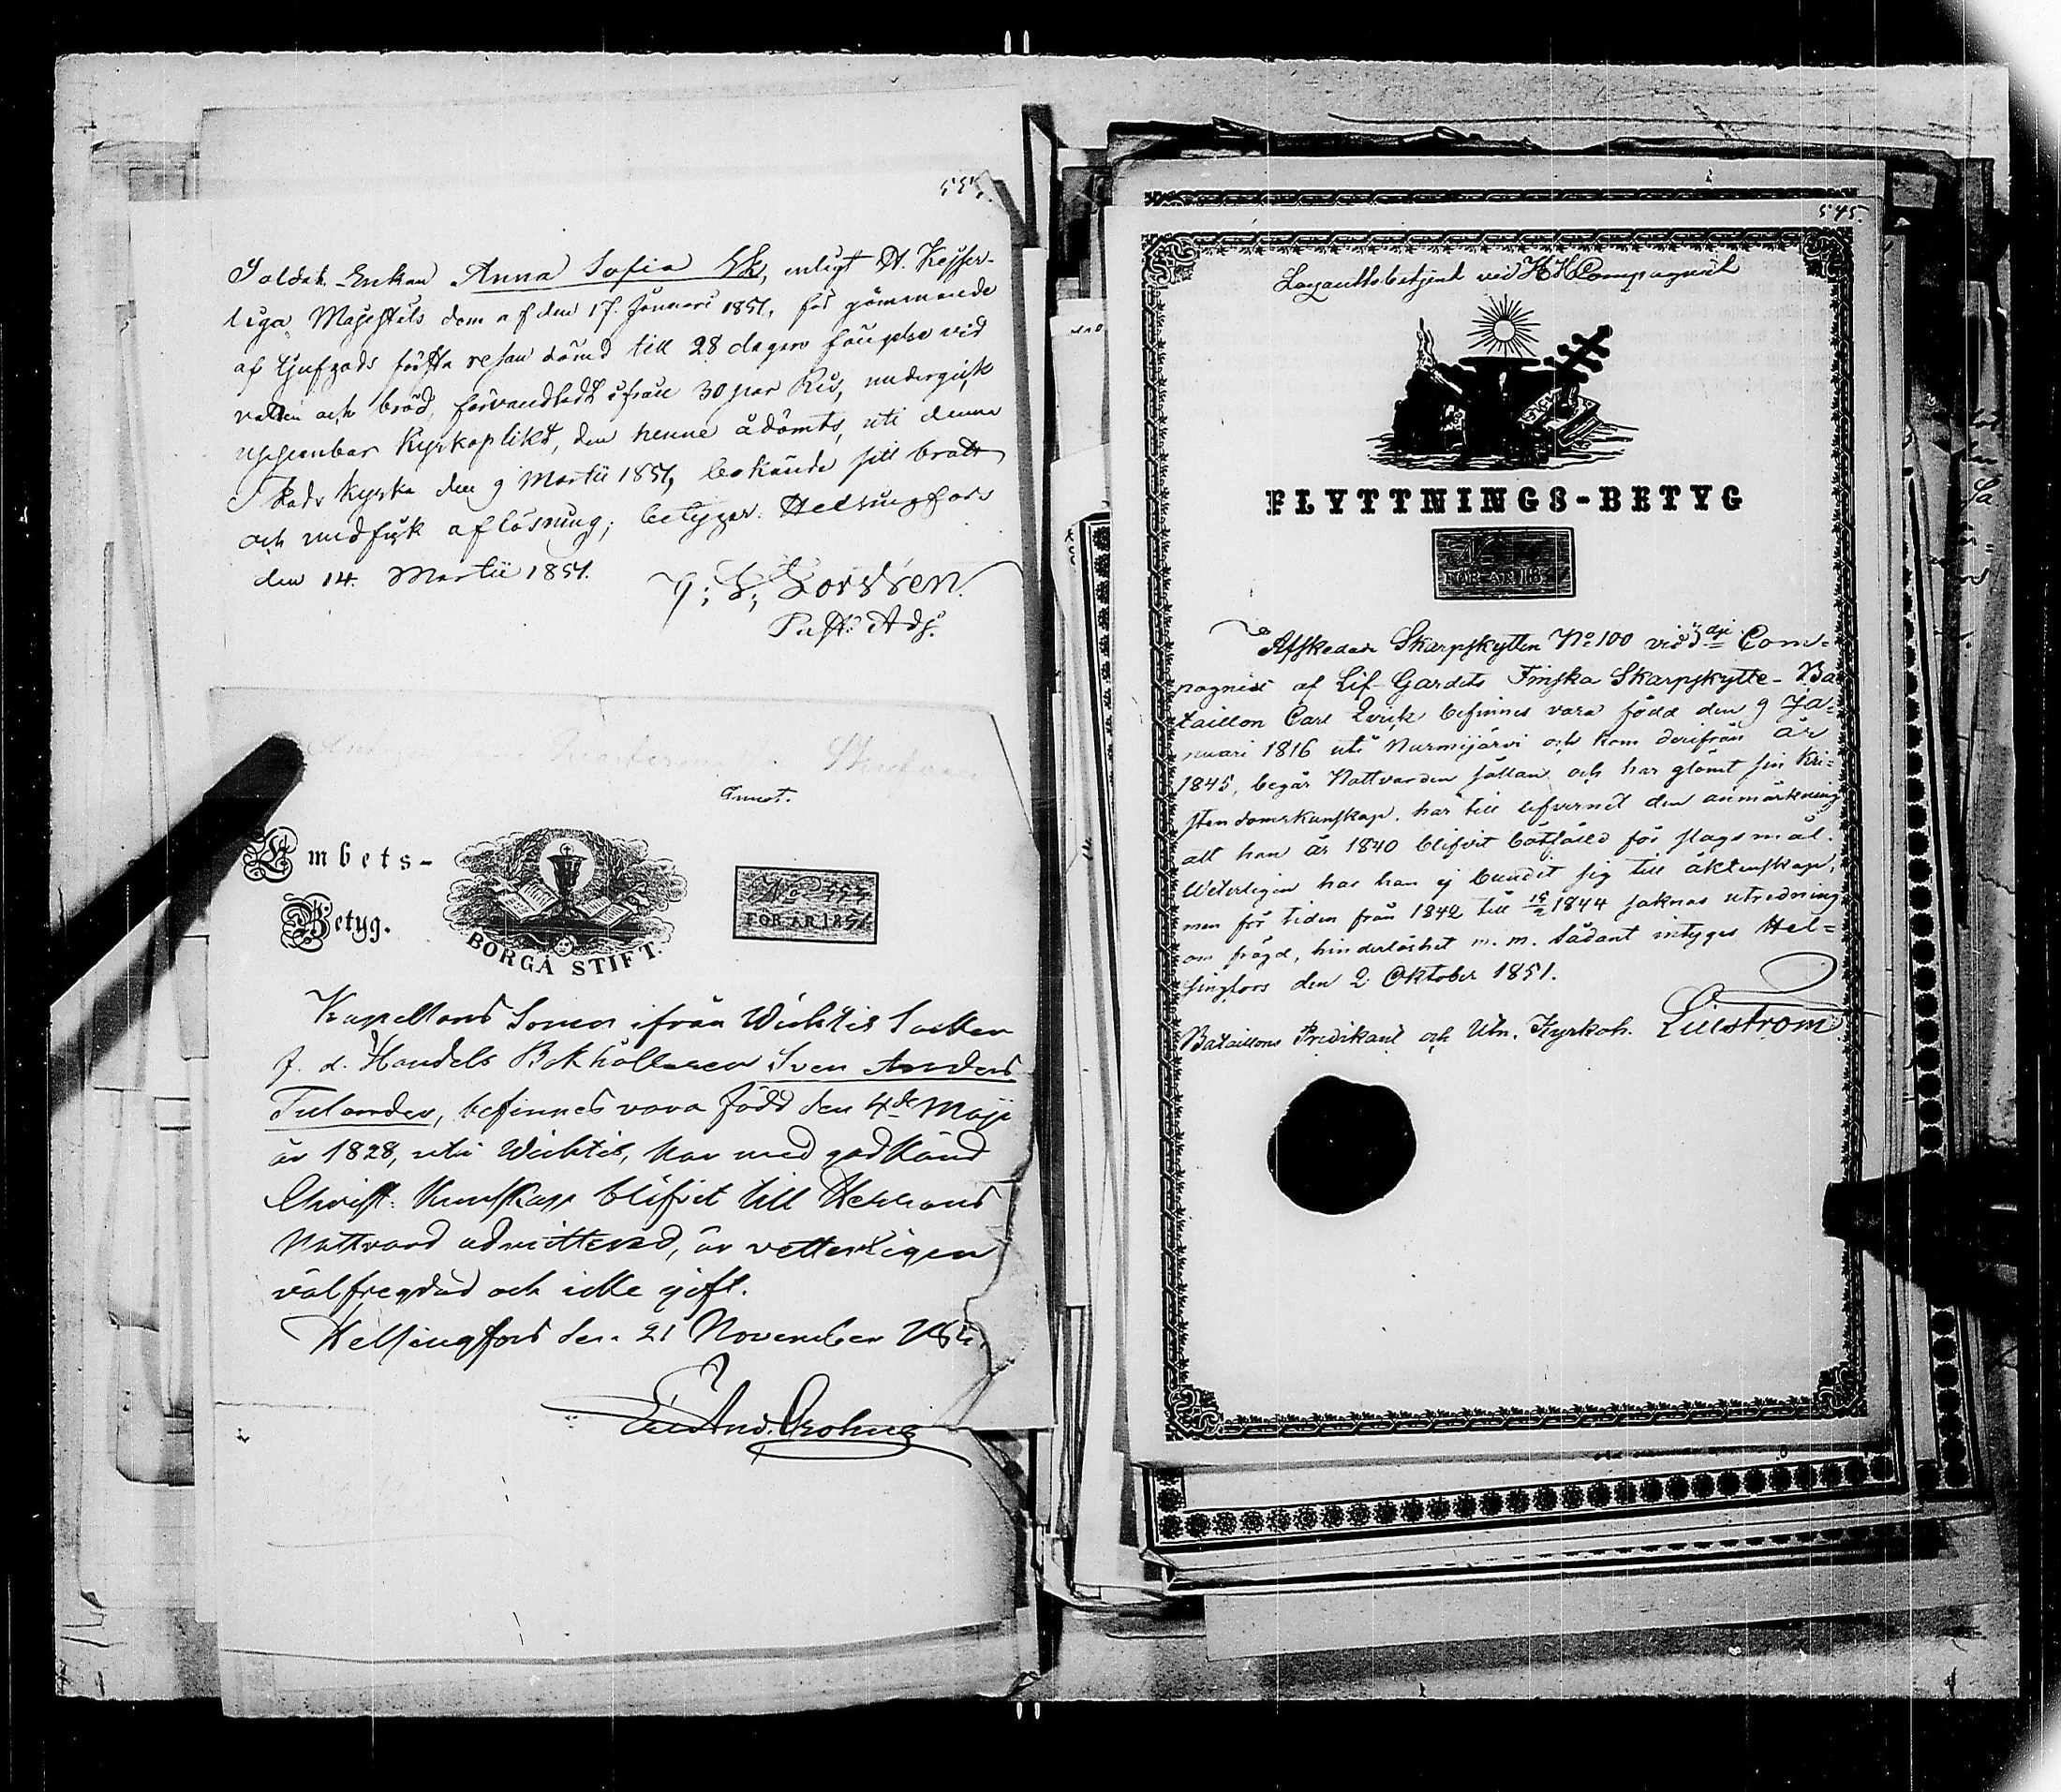 557.
Soldats Enkan Anna Sofia Ek, enligt H. Kejser-
liga Majestäts dom af den 17. Januari 1851, för gömmande
af tjufgods första resan dömd till 28 dagars fängelse vid
vatten och bröd, förvandladt ifrån 30 par Ris, undergick
uppenbar Kyrkoplikt, den henne ådömts, uti denna
Stads Kyrka den 9 Martii 1851, bekände sitt brott
och undfick aflösning; betygar. Helsingfors
den 14. Martii 1851.
Past. Adj.
Embets-
Betyg.
BORGÅ STIFT.
No 554
FÖR ÅR 1851
Kapellans Sonen ifrån Wichtis Socken
f. d. Handels Bokhållaren Sven Anders
Tulander, befinnes vara född den 4de Maji
år 1828, uti Wichtis, har med godkänd
Christ. Kunskap blifvit till Herrans
Nattvard admitterad, är vetterligen
välfregdad och icke gift.
Helsingfors den 21 November 1851.
545.
Lazarettsbetjent vid Compagniet
FLYTTNINGS-BETYG
No
FÖR ÅR 18
Afskedade Skarpskytten No 100 vid 3dje Com-
pagniet af Lif-Gardets Finska Skarpskytte-Ba
taillon Carl Qvick befinnes vara född den 9 Ja-
nuari 1816 uti Nurmijärvi och kom derifrån år
1845, begår Nattvarden sällan och har glömt sin Kri-
stendomskunskap, har till lefvernet den anmärkning
att han år 1840 blifvit bötfälld för slagsmål.
Weterligen har han ej bundit sig till äktenskap,
men för tiden från 1842 till 1844 saknas utredning
om frägd, hinderlöshet m. m. Sådant intygas Hel-
singfors den 2 Oktober 1851.
Bataillons Predikant och Utn. Kyrkoh. Lilström